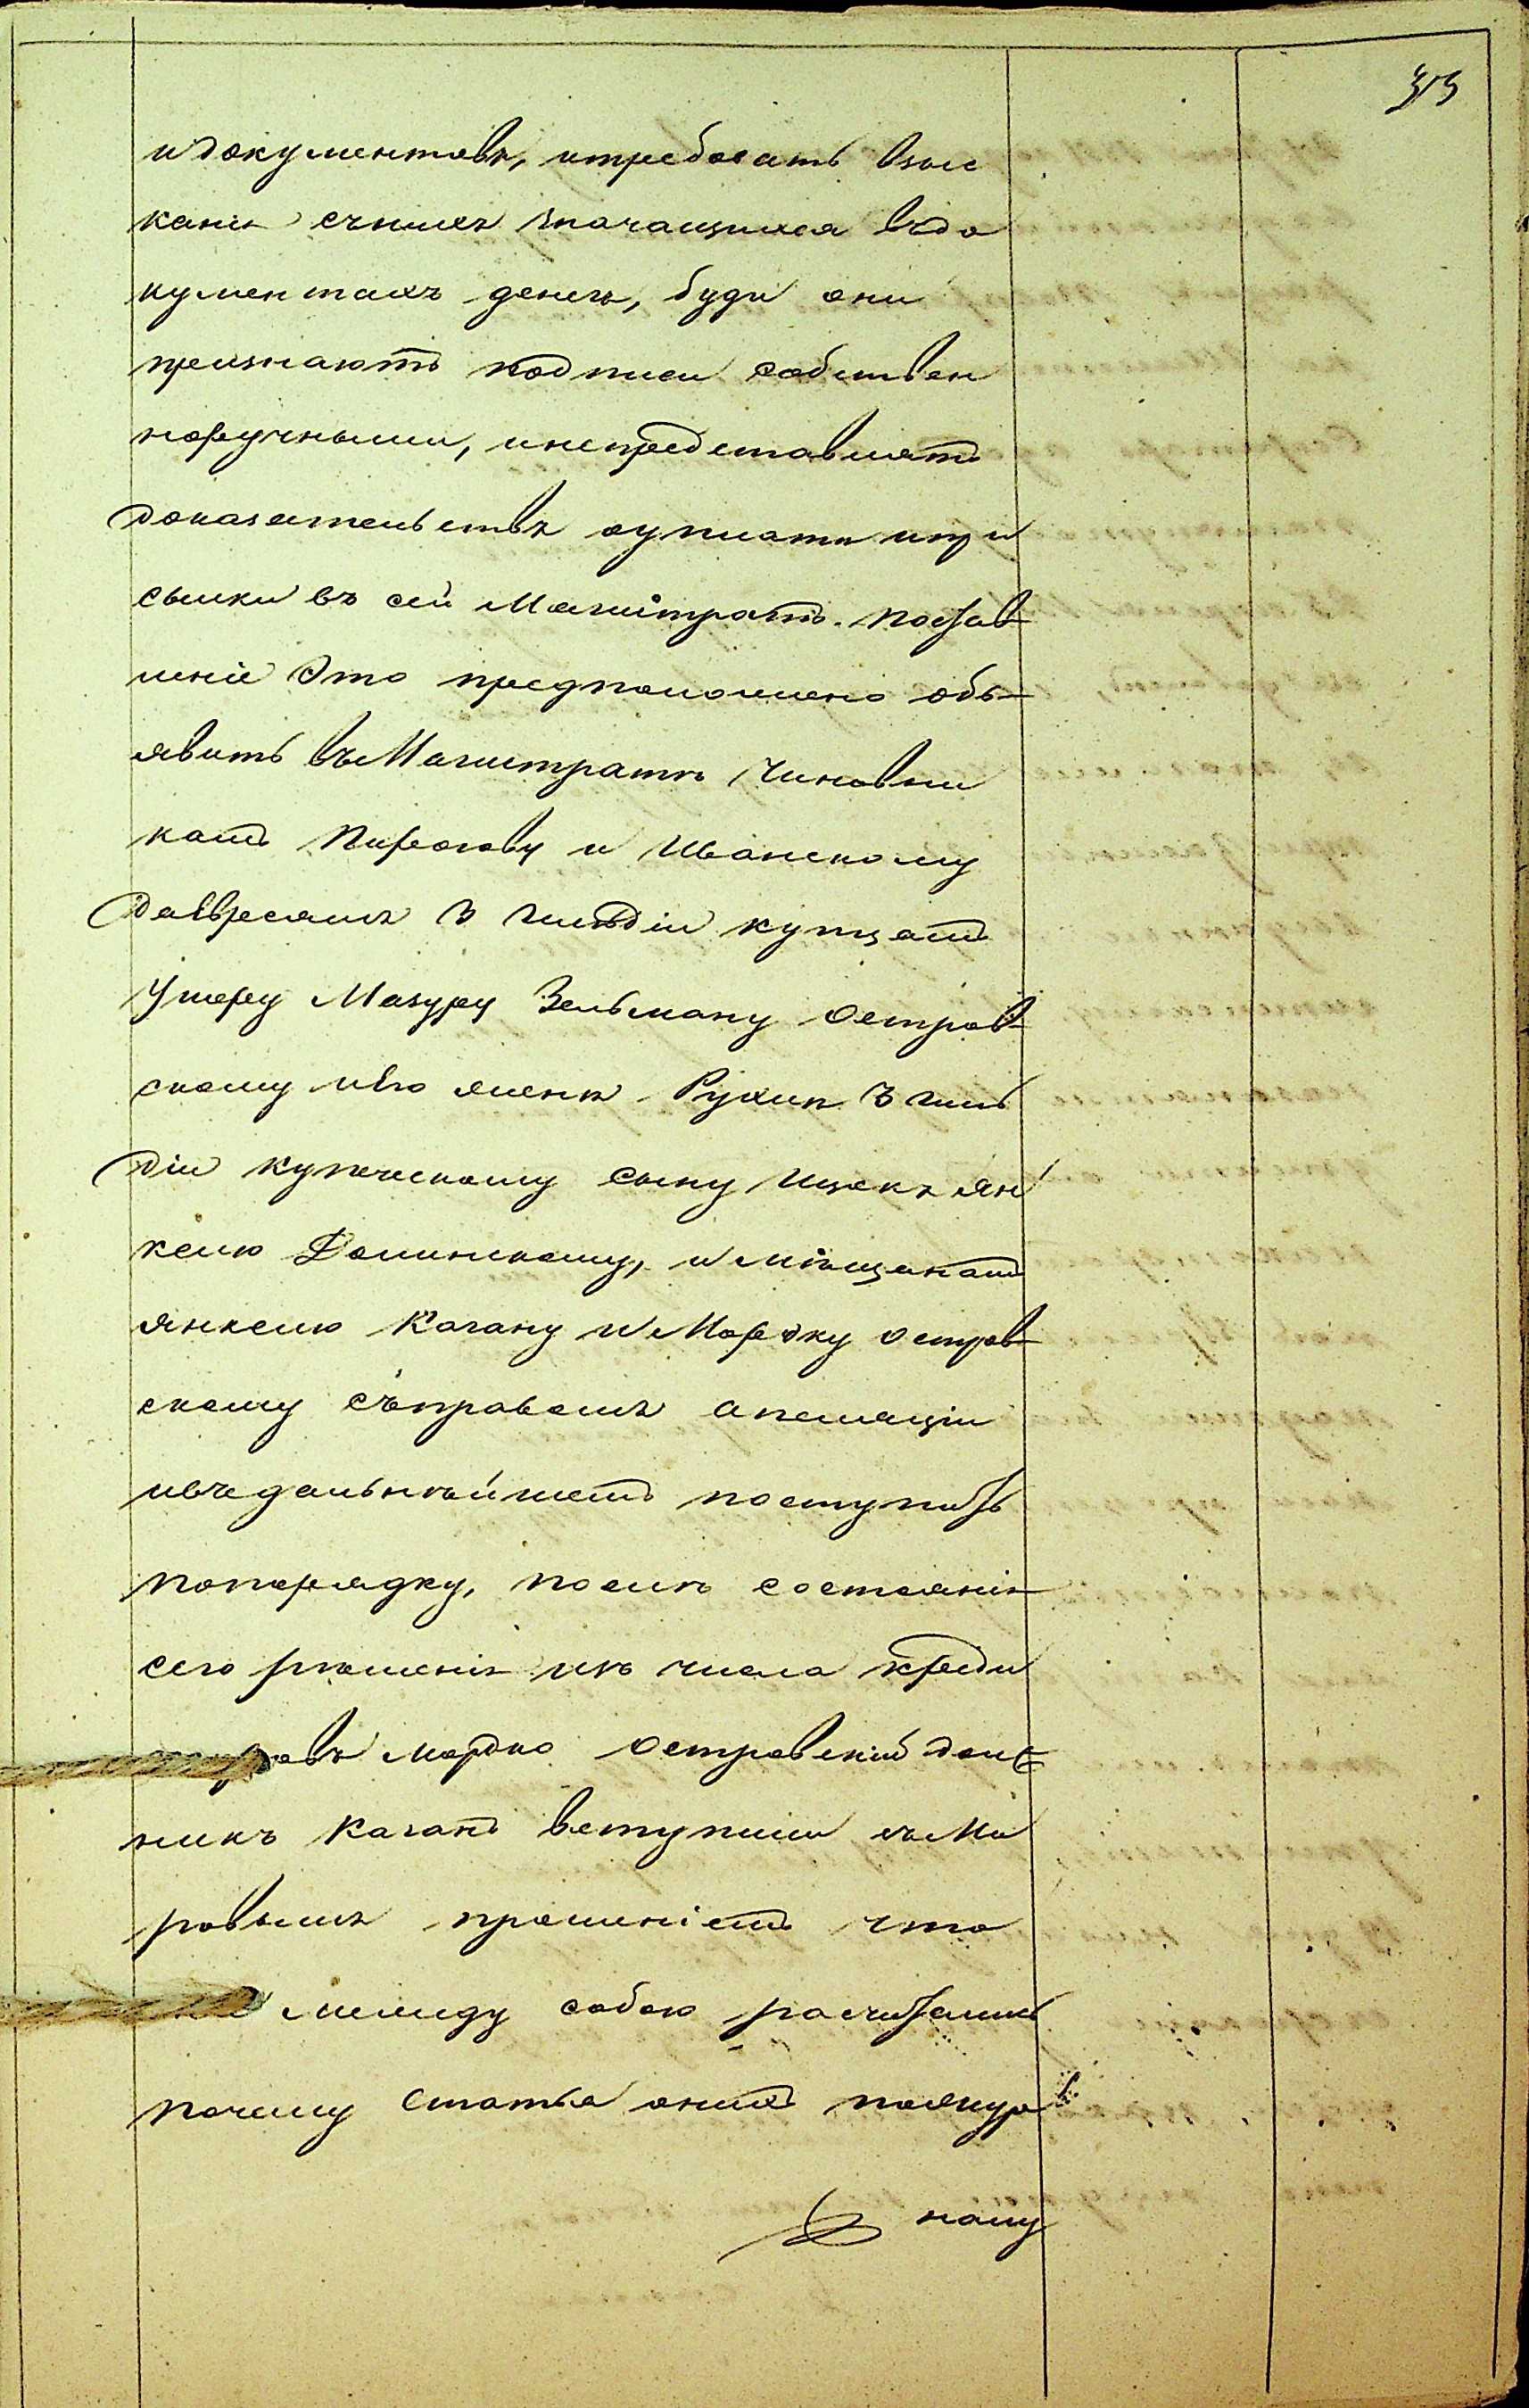 идокументовъ, итребовать взыс
канія сънихъ значащихся вѣдо
кументахъ денегъ, буди они
признаютъ подписи собствен
норучными, инепредставлятъ
доказательствъ оуплатѣ ипри
сылки въ сей Магистратъ.
шеніе это предположено объ
явить въМагистратѣ чиновни
камъ Пирогову и Иванскому
даевреямъ 3 гильдіи купцамъ
Ушеру Мазуру Зельману Остров
скому иего женѣ Рухли 3 гиль
діи купеческому сыну Ицекъ Ян
келю Долинскому, и мѣщанамъ
Янкелю Кагану и Мордку Остров
скому съправомъ апелляціи
ивъдальнѣйшемъ поступить
попорядку, послѣ состоянія
сего рѣшенія изъ числа креди
торовъ Мордко Островскій долж
никъ Каганъ вступили съМи
ровымъ прошеніемъ что
они между собою расчитались
почему Статья онихъ поякуров
ному